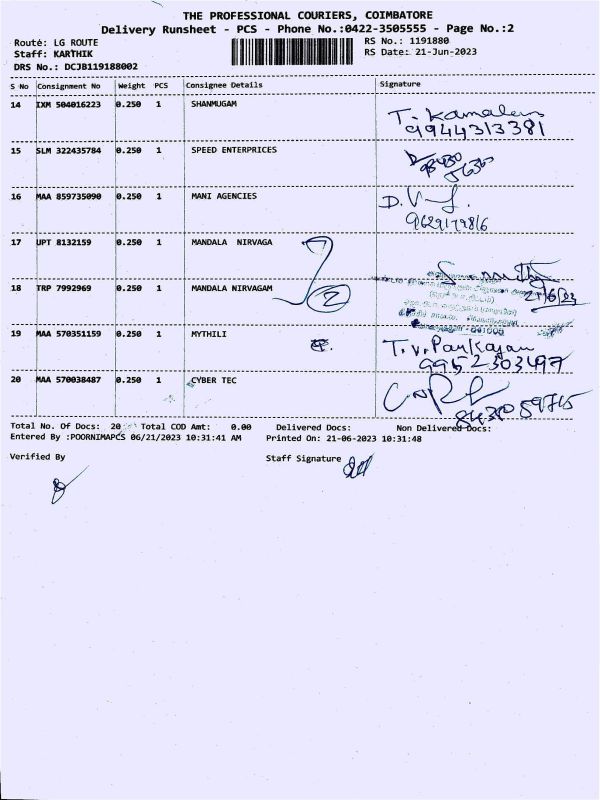 THE PROFESSIONAL COURIERS, COIMBATORE
Delivery Runsheet - PCS - Phone No.:0422-3505555 - Page No.:2
Route: LG ROUTE
RS No.: 1191880
Staff: KARTHIK
RS Date: 21-Jun-2023
DRS No.: DCJB119188002
S No Consignment No Weight PCS Consignee Details Signature
14 IXM 504016223 0.250 1 SHANMUGAM
9944313381
15 SLM 322435784 0.250 1 SPEED ENTERPRICES
16 MAA 859735090 0.250 1 MANI AGENCIES
9629179816
17 UPT 8132159 0.250 1 MANDALA NIRVAGA
18 TRP 7992969 0.250 1 MANDALA NIRVAGAM
2
19 MAA 570351159 0.250 1 MYTHILI
T.V. Pankajan
9952303497
20 MAA 570038487 0.250 1 CYBER TEC
Total No. Of Docs: 20 Total COD Amt: 0.00 Delivered Docs: Non Delivered Docs:
Entered By :POORNIMAPCS 06/21/2023 10:31:41 AM Printed On: 21-06-2023 10:31:48
Verified By Staff Signature